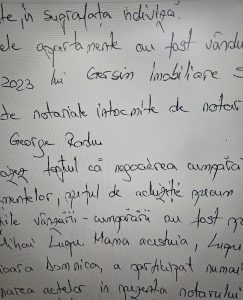 te, în suprafața indiviză.
ele apartamente au fost vându
2023 lui Gersin Imobiliare S
te notariale întocmite de notar
George Radu
faptul că negocierea cumpără
mentelor, prețul de achiziție precum
ile vânzării - cumpărării au fost p
Mihai Lupu Mama acestuia, Lupu
ioara Dominica, a participat numai
narea actelor în prezența notarului